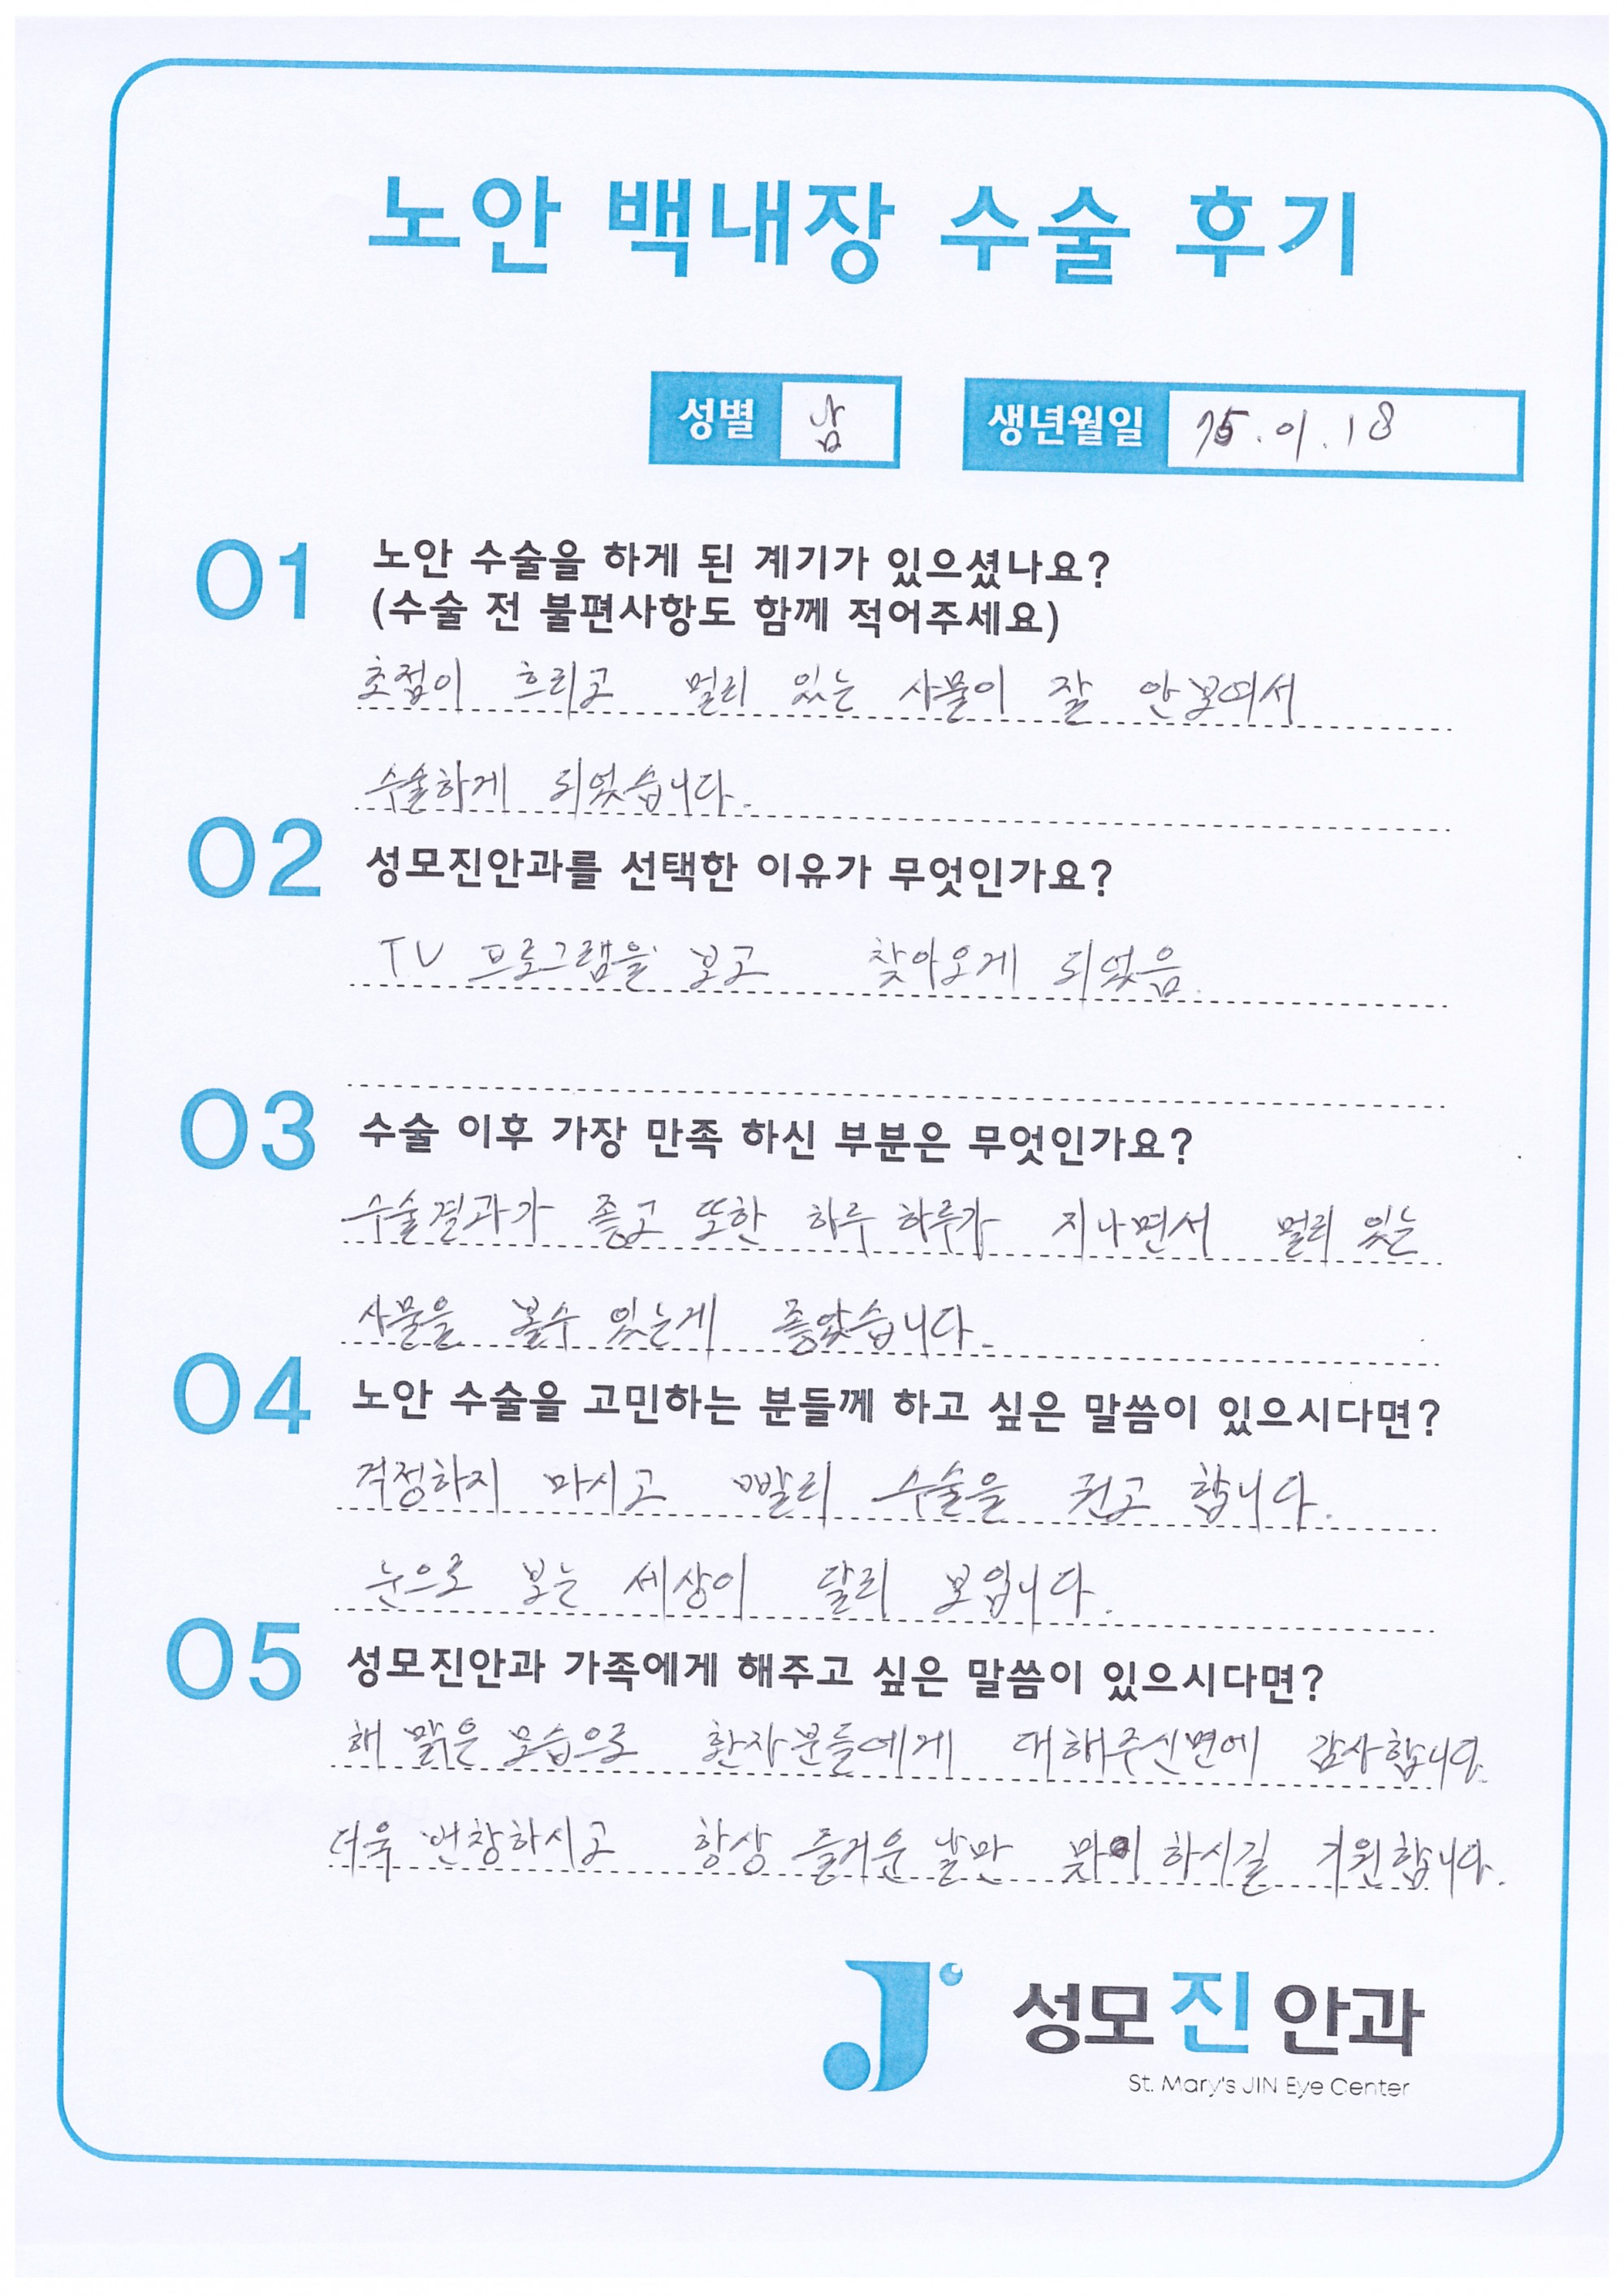 노안 백내장 수술 후기
성별 남 생년월일 75.01.18
01 노안 수술을 하게 된 계기가 있으셨나요?
(수술 전 불편사항도 함께 적어주세요)
초점이 흐리고 멀리 있는 사물이 잘 안보여서
수술하게 되었습니다.
02 성모진안과를 선택한 이유가 무엇인가요?
TV 프로그램을 보고 찾아오게 되었음.
03 수술 이후 가장 만족 하신 부분은 무엇인가요?
수술결과가 좋고 또한 하루 하루가 지나면서 멀리 있는
사물을 볼수 있는게 좋았습니다.
04 노안 수술을 고민하는 분들께 하고 싶은 말씀이 있으시다면?
걱정하지 마시고 빨리 수술을 권고 합니다.
눈으로 보는 세상이 달리 보입니다.
05 성모진안과 가족에게 해주고 싶은 말씀이 있으시다면?
해 맑은 모습으로 환자분들에게 대해주신면에 감사합니다.
더욱 번창하시고 항상 즐거운 날만 맞이 하시길 기원합니다.
성모진안과
St. Mary's JIN Eye Center